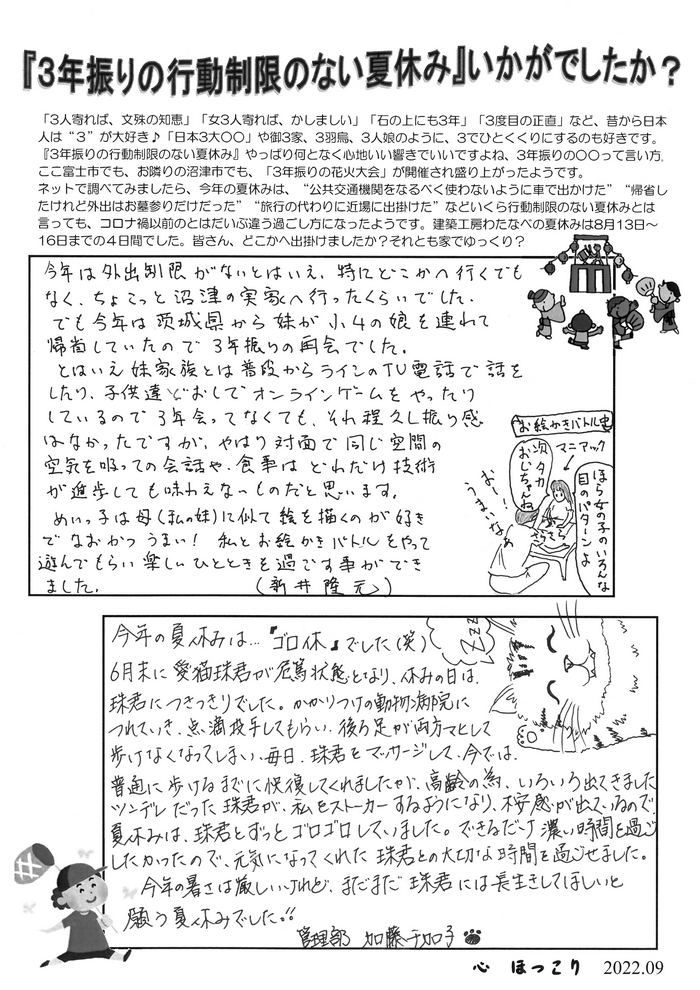 『3年振りの行動制限のない夏休み』いかがでしたか？
「3人寄れば、文殊の知恵」「女3人寄れば、かしましい」「石の上にも3年」「3度目の正直」など、昔から日本
人は“3”が大好き♪「日本3大〇〇」や御3家、3羽烏、3人娘のように、3でひとくくりにするのも好きです。
『3年振りの行動制限のない夏休み』やっぱり何となく心地いい響きでいいですよね、3年振りの〇〇って言い方。
ここ富士市でも、お隣りの沼津市でも、「3年振りの花火大会」が開催され盛り上がったようです。
ネットで調べてみましたら、今年の夏休みは、“公共交通機関をなるべく使わないように車で出かけた”“帰省し
たけれど外出はお墓参りだけだった”“旅行の代わりに近場に出掛けた”などいくら行動制限のない夏休みとは
言っても、コロナ禍以前のとはだいぶ違う過ごし方になったようです。建築工房わたなべの夏休みは8月13日～
16日までの4日間でした。皆さん、どこかへ出掛けましたか？それとも家でゆっくり？
今年は外出制限がないとはいえ、特にどこかへ行くでも
なく、ちょこっと沼津の実家へ行ったくらいでした。
でも今年は茨城県から妹が小4の娘を連れて
帰省していたので3年振りの再会でした。
とはいえ妹家族とは普段からラインのTV電話で話を
したり、子供達どおしでオンラインゲームをやったり
しているので3年会ってなくても、それ程久し振り感
はなかったですが、やはり対面で同じ空間の
空気を吸っての会話や、食事はどれだけ技術
が進歩しても味わえないものだと思います。
めいっ子は母(私の妹)に似て絵を描くのが好き
でなおかつうまい！私とお絵かきバトルをやって
遊んでもらい楽しいひとときを過ごす事ができ
ました。(新井隆元)
お絵かきバトル中
マニアック
ほら女の子のいろんな
目のパターンよ
次タカ
おじちゃんね
さらさら
おー！
うまいなぁ
今年の夏休みは…『ゴロ休』でした(笑)
ZZZ
6月末に愛猫珠君が危篤状態となり、休みの日は、
珠君につきっきりでした。かかりつけの動物病院に
つれていき、点滴投与してもらい、後ろ足が両方マヒして
歩けなくなってしまい、毎日、珠君をマッサージして、今では、
普通に歩けるまでに快復してくれましたが、高齢の為、いろいろ出てきました
ツンデレだった珠君が、私をストーカーするようになり、不安感が出ているので、
夏休みは、珠君とずっとゴロゴロしていました。できるだけ濃い時間を過ご
したかったので、元気になってくれた珠君との大切な時間を過ごせました。
今年の暑さは厳しいけれど、まだまだ珠君には長生きしてほしいと
願う夏休みでした!!
管理部 加藤千加子
心 ほっこり 2022.09